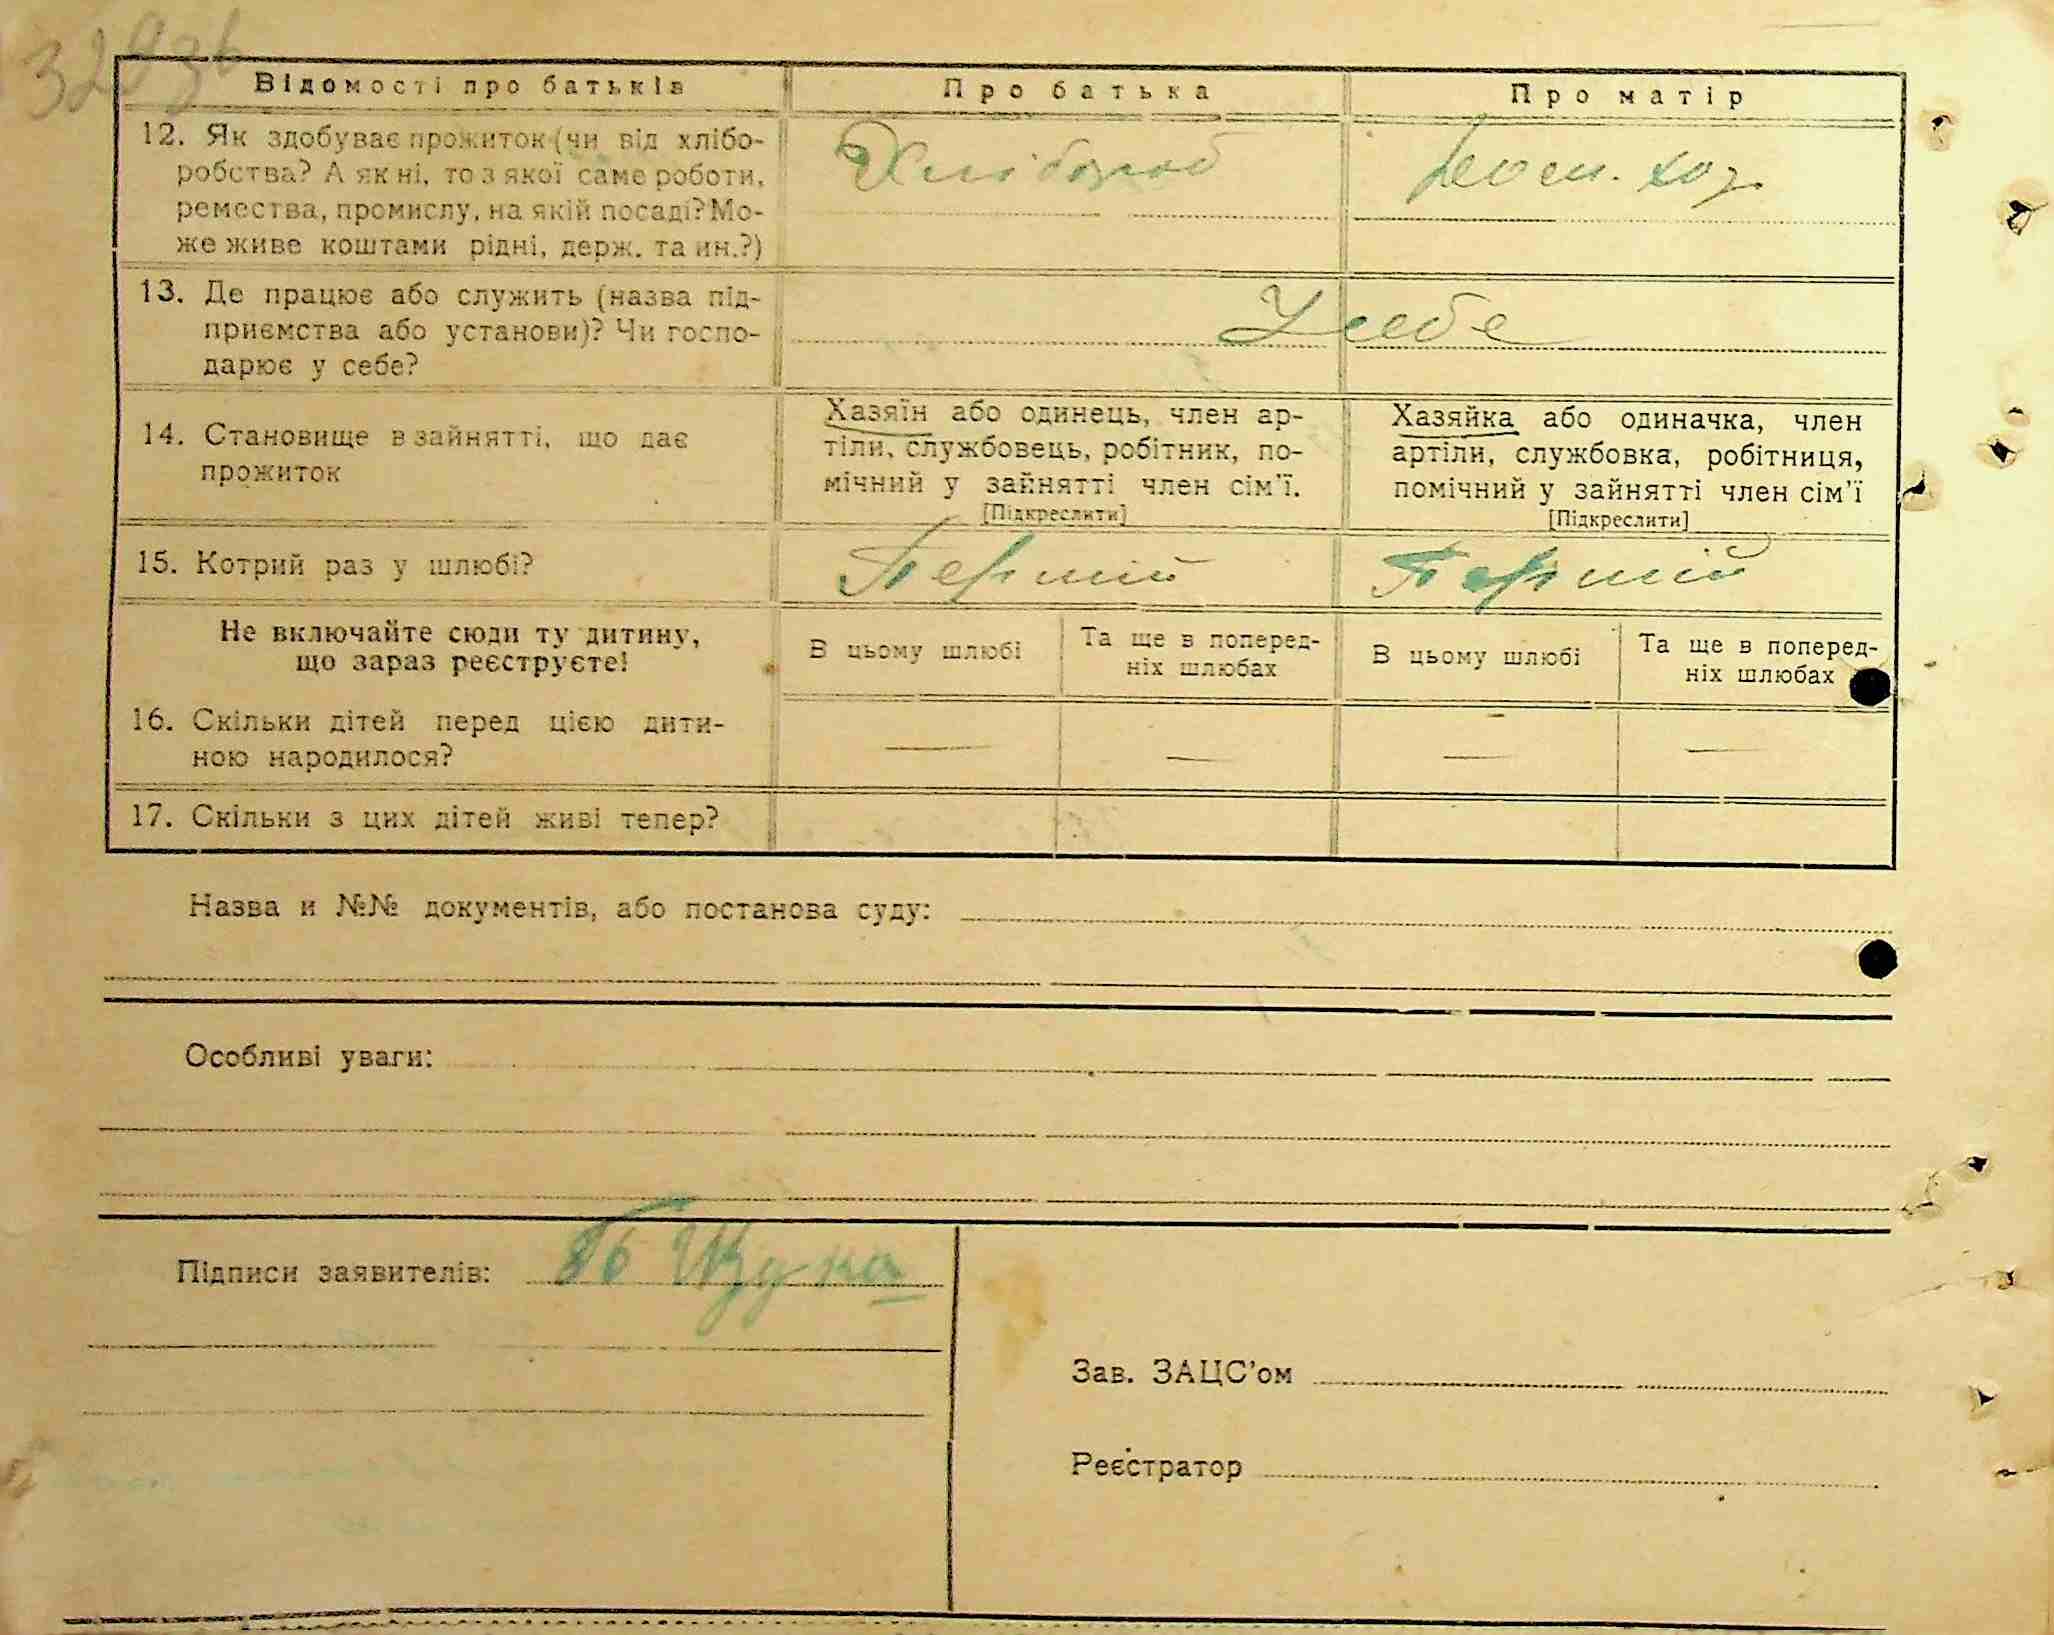 Відомості про батьків Про батька Про матір
12. Як здобуває прожиток (чи від хлібо-
робства? А як ні, то з якої саме роботи,
ремества, промислу, на якій посаді? Мо-
же живе коштами рідні, держ. та ин.?)
Хлібороб
дом. хоз.
13. Де працює або служить (назва під-
приємства або установи)? Чи госпо-
дарює у себе?
У себе
14. Становище в зайнятті, що дає
прожиток
Хазяїн або одинець, член ар-
тіли, службовець, робітник, по-
мічний у зайнятті член сім'ї.
[Підкреслити]
Хазяйка або одиначка, член
артіли, службовка, робітниця,
помічний у зайнятті член сім'ї
[Підкреслити]
15. Котрий раз у шлюбі? Першій Першій
Не включайте сюди ту дитину,
що зараз реєструєте!
В цьому шлюбі
Та ще в поперед-
ніх шлюбах
В цьому шлюбі
Та ще в поперед-
ніх шлюбах
16. Скільки дітей перед цією дити-
ною народилося?
— — — —
17. Скільки з цих дітей живі тепер?
Назва и №№ документів, або постанова суду:
Особливі уваги:
Підписи заявителів:
Зав. ЗАЦС'ом
Реєстратор